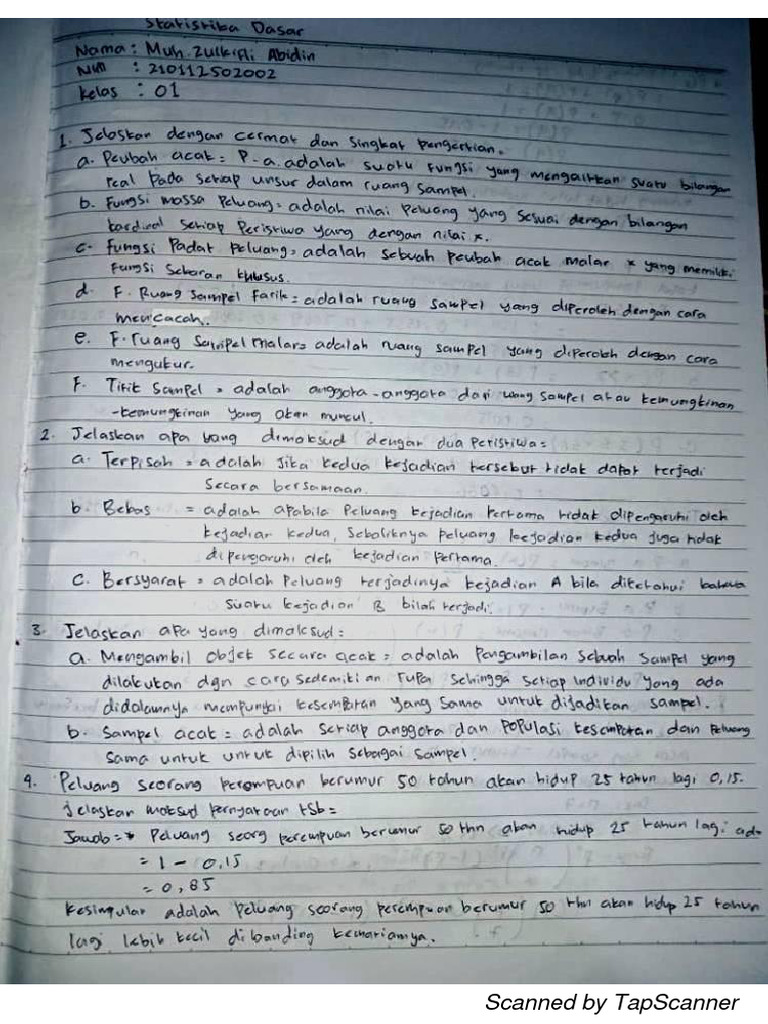 Statistika Dasar
Nama : Muh. Zulkifli Abidin
Nim : 210112502002
Kelas : 01
1. Jelaskan dengan cermat dan singkat pengertian.
a. Peubah acak = P-a. adalah suatu fungsi yang mengaitkan suatu bilangan
real pada setiap unsur dalam ruang sampel.
b. Fungsi massa Peluang = adalah nilai Peluang yang sesuai dengan bilangan
kardinal setiap Peristiwa yang dengan nilai x.
c. Fungsi Padat Peluang = adalah sebuah peubah acak malar x yang memiliki
Fungsi Sebaran khusus.
d. F. Ruang Sampel Farik = adalah ruang sampel yang diperoleh dengan cara
mencacah.
e. F. ruang Sampel malar = adalah ruang sampel yang diperoleh dengan cara
mengukur.
F. Titik Sampel = adalah anggota-anggota dari ruang sampel atau kemungkinan
-kemungkinan yang akan muncul.
2. Jelaskan apa yang dimaksud dengan dua peristiwa =
a. Terpisah = adalah Jika kedua kejadian tersebut tidak dapat terjadi
secara bersamaan.
b. Bebas = adalah apabila Peluang kejadian Pertama tidak dipengaruhi oleh
kejadian kedua, Sebaliknya peluang kejadian kedua juga tidak
dipengaruhi oleh kejadian Pertama.
C. Bersyarat = adalah Peluang terjadinya kejadian A bila diketahui bahwa
suatu kejadian B bilah terjadi.
3. Jelaskan apa yang dimaksud =
a. Mengambil Objek secara acak = adalah Pengambilan Sebuah Sampel yang
dilakutan dgn cara sedemikian rupa Sehingga setiap Individu yang ada
didalamnya mempunyai kesempatan yang sama untuk dijadikan sampel.
b. Sampel acak = adalah setiap anggota dan Populasi kesempatan dan Peluang
Sama untuk untuk dipilih sebagai Sampel.
4. Peluang Seorang perempuan berumur 50 tahun akan hidup 25 tahun lagi 0,15.
jelaskan maksud pernyataan tsb =
Jawab = * Peluang seorg perempuan berumur 50 thn akan hidup 25 tahun lagi ad.
= 1 - 0,15
= 0,85
Kesimpulan adalah Peluang seorang perempuan berumur 50 thn akan hidup 25 tahun
lagi lebih kecil dibanding kematiannya.
Scanned by TapScanner